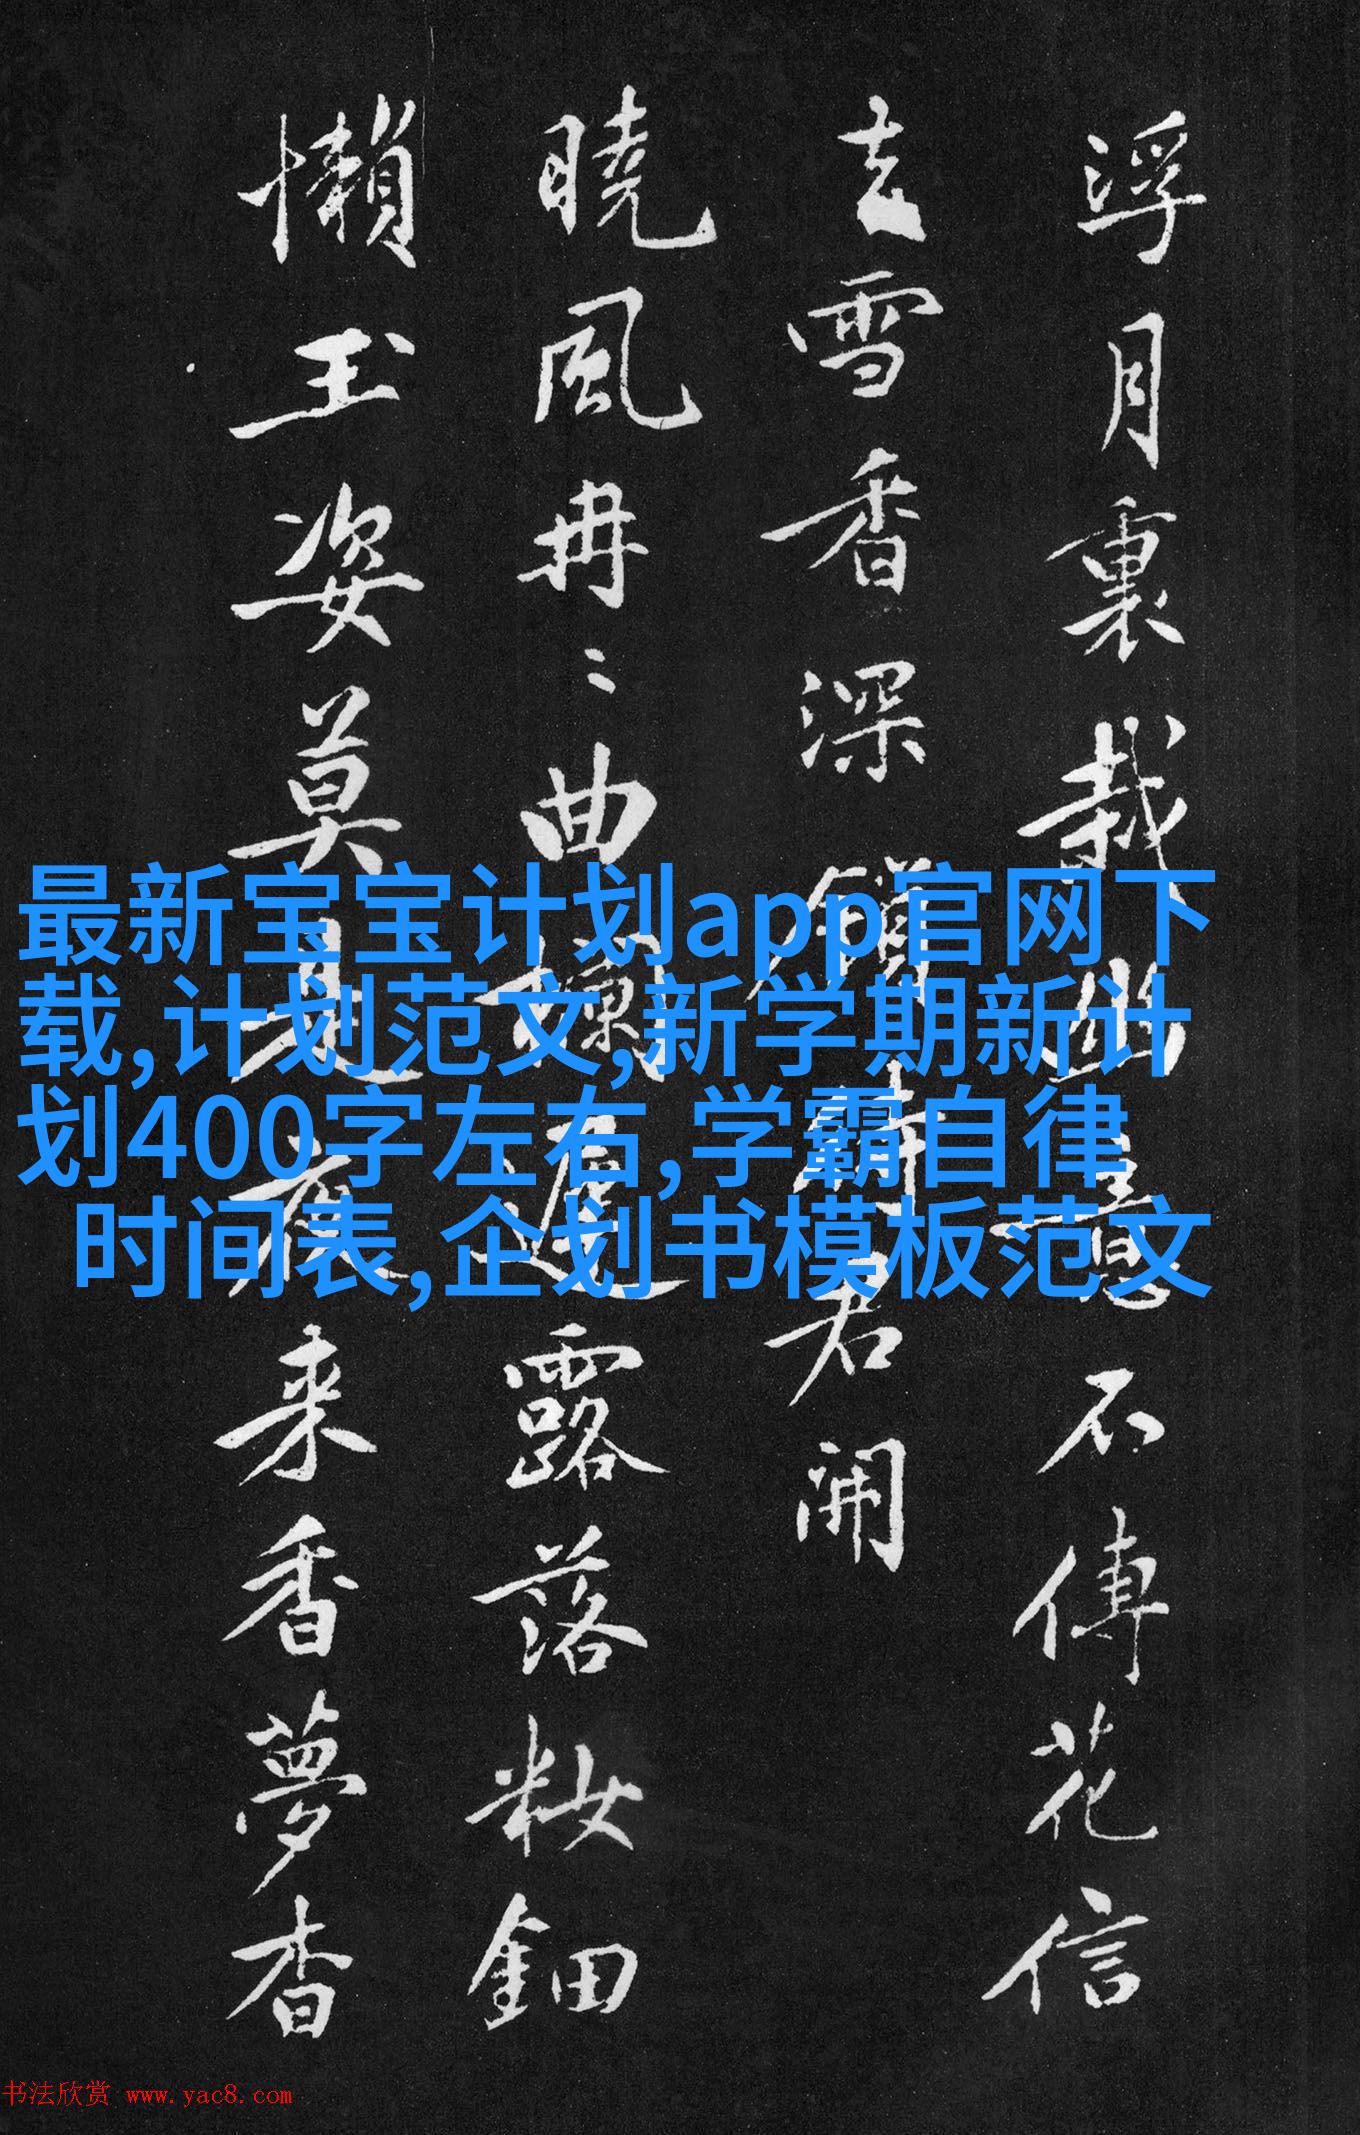 浮月裏栽幽意不傳花信
去雪香深鎖待君開
曉風冉〻曲欄邊露落粧鈿
懶玉姿莫是夜来香夢杳
最新宝宝计划app官网下
载,计划范文,新学期新计
划400字左右,学霸自律
时间表,企划书模板范文
书法欣赏 www.yac8.com